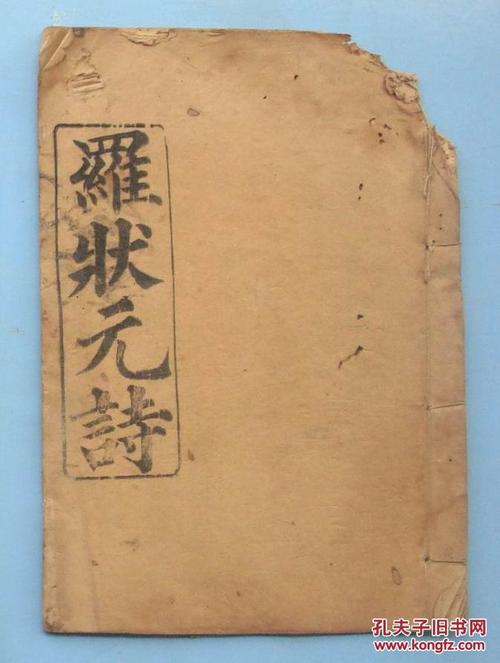 羅狀元詩
孔夫子旧书网
www.kongfz.com